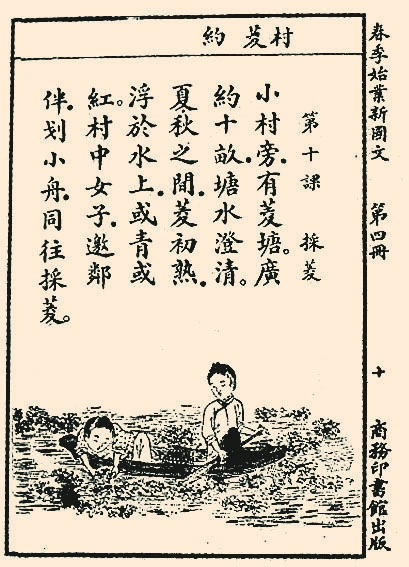 春季始業新國文　第四冊　十　商務印書館出版
村　菱　約
第十課　採菱
小村旁。有菱塘。廣
約十畝。塘水澄清。
夏秋之間。菱初熟。
浮於水上。或青或
紅。村中女子。邀鄰
伴。划小舟。同往採
菱。